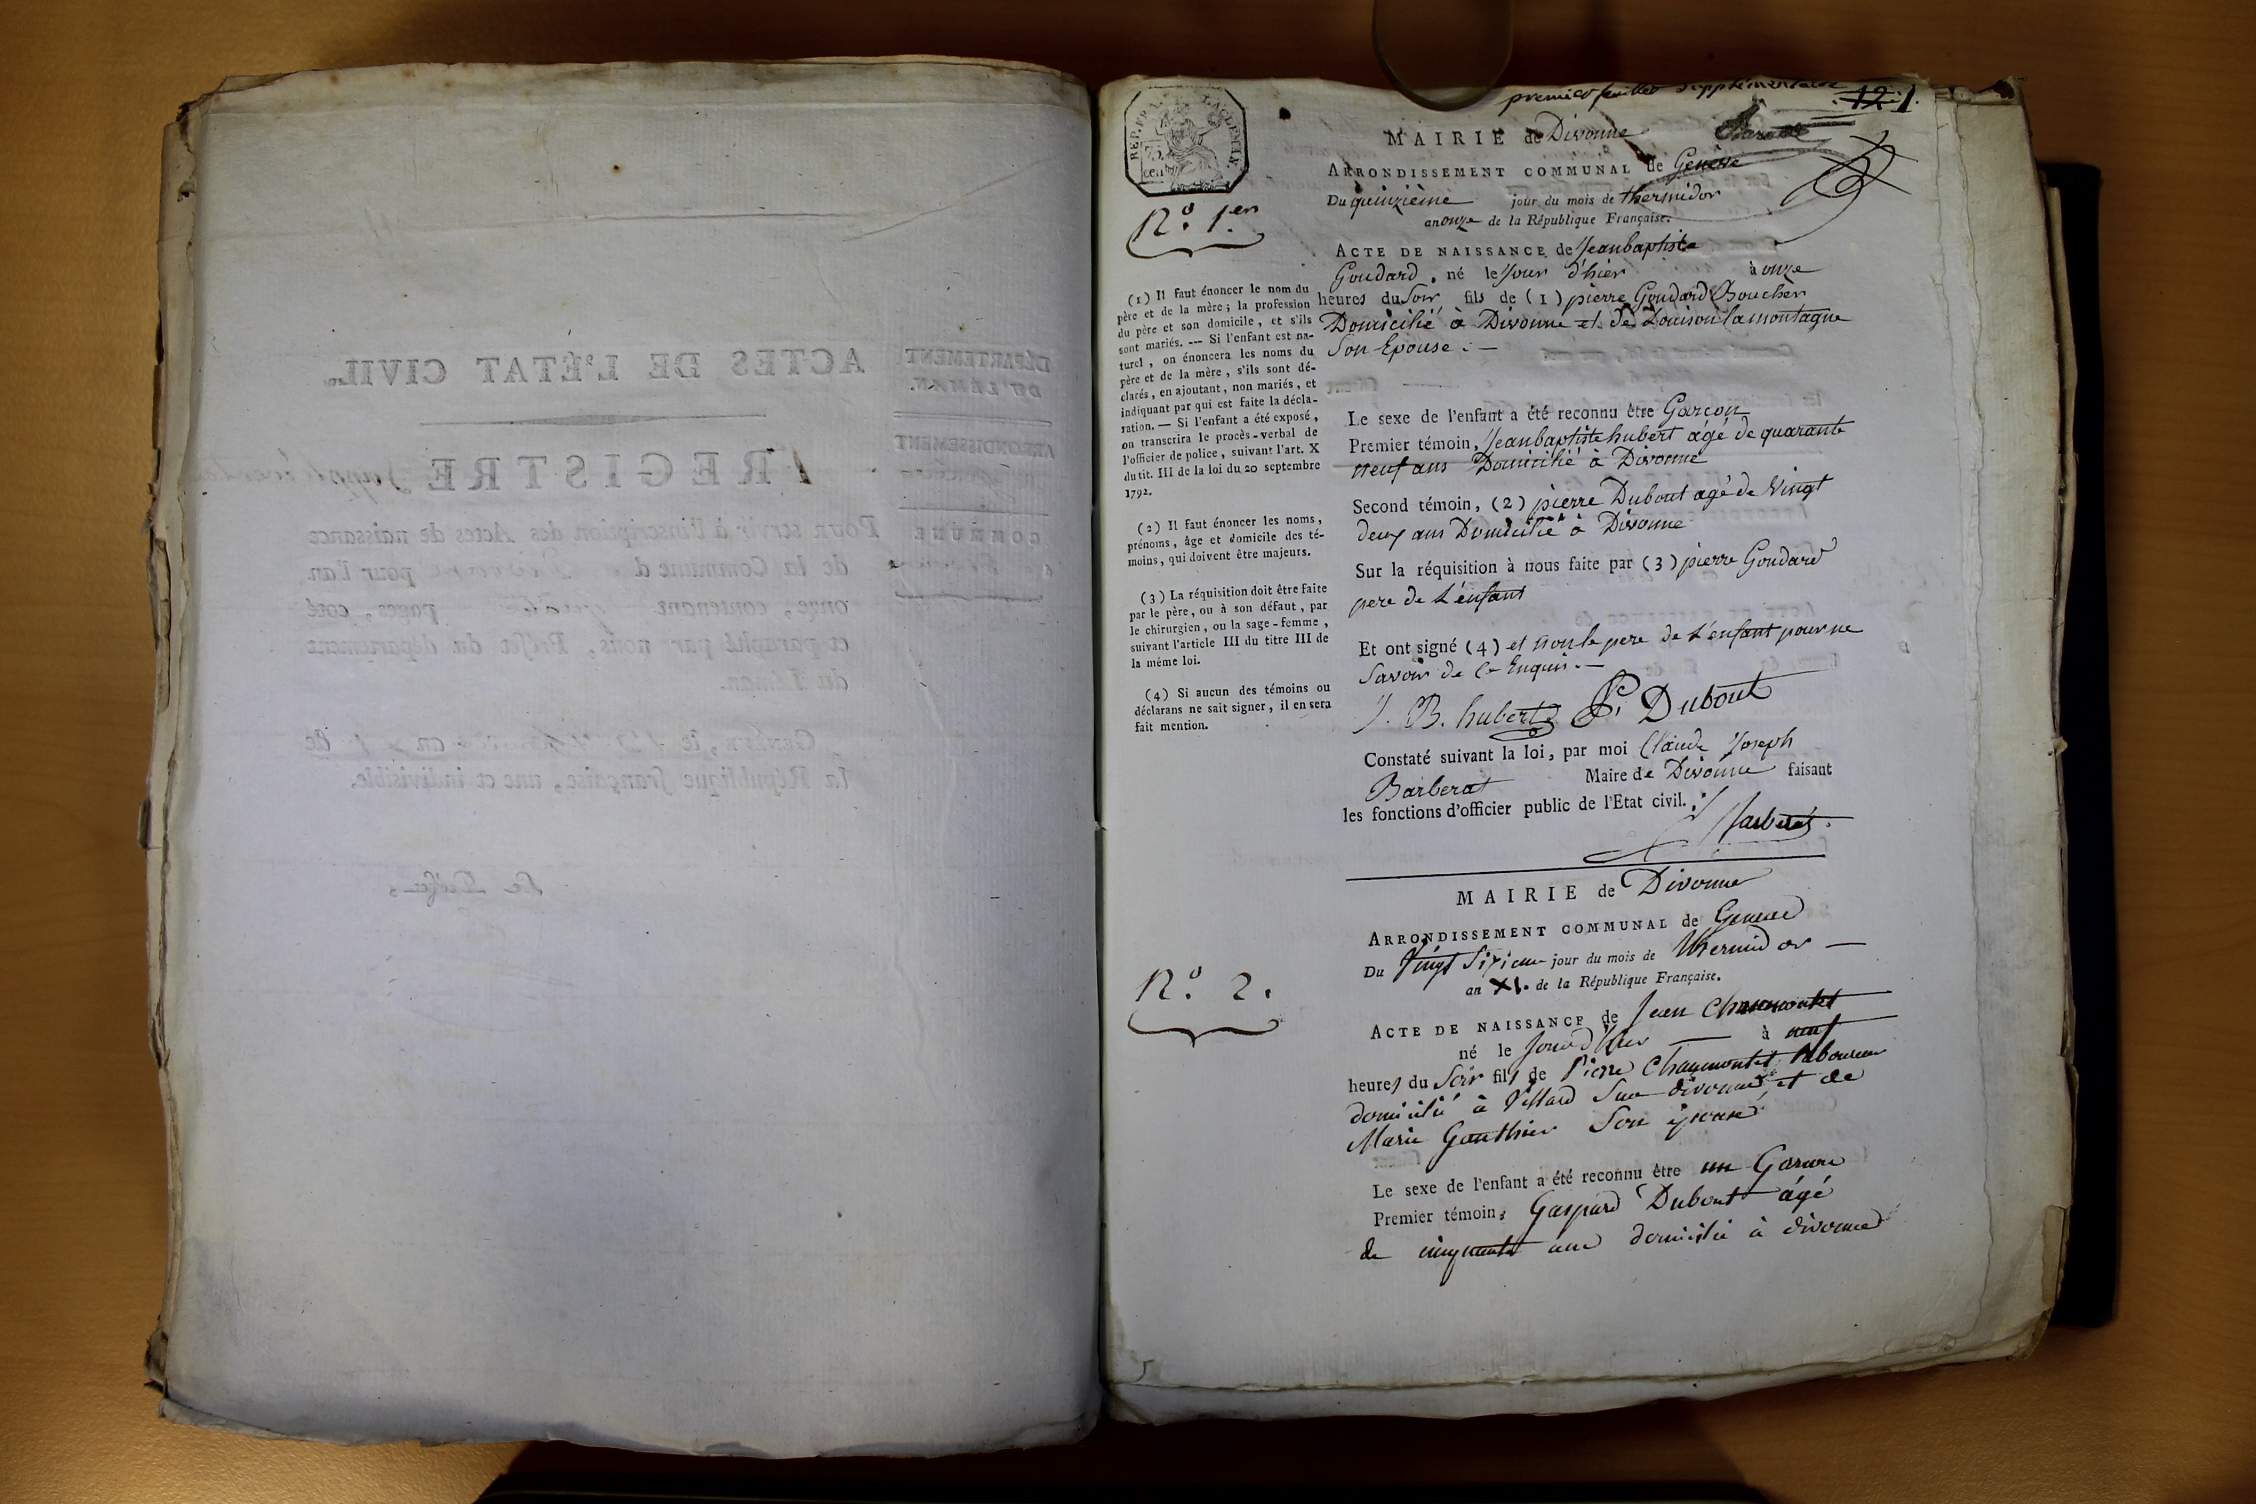 premier feuillet supplémentaire
12 1
REP. FRA.
75
cent.
MAIRIE de Divonne
ARRONDISSEMENT COMMUNAL de Genève
Du quinzième jour du mois de thermidor
an onze de la République Française.
N.º 1.er
ACTE DE NAISSANCE de Jeanbaptiste
Goudard, né le Jour d'hier à onze
heures du Soir fils de (1) pierre Goudard Boucher
Domicilié à Divonne et de Louison lamontagne
Son Epouse. —
Le sexe de l'enfant a été reconnu être Garçon
Premier témoin, Jeanbaptiste hubert agé de quarante
neuf ans Domicilié à Divonne
Second témoin, (2) pierre Dubout agé de Vingt
deux ans Domicilié à Divonne
Sur la réquisition à nous faite par (3) pierre Goudard
pere de L'enfant
Et ont signé (4) et non le pere de L'enfant pour ne
Savoir de Ce Enquis. —
J. B. hubert P. Dubout
Constaté suivant la loi, par moi Claude Joseph
Barberat Maire de Divonne faisant
les fonctions d'officier public de l'Etat civil.
Barberat
(1) Il faut énoncer le nom du
père et de la mère ; la profession
du père et son domicile, et s'ils
sont mariés. --- Si l'enfant est na-
turel, on énoncera les noms du
père et de la mère, s'ils sont dé-
clarés, en ajoutant, non mariés, et
indiquant par qui est faite la décla-
ration. — Si l'enfant a été exposé,
on transcrira le procès-verbal de
l'officier de police, suivant l'art. X
du tit. III de la loi du 20 septembre
1792.
(2) Il faut énoncer les noms,
prénoms, âge et domicile des té-
moins, qui doivent être majeurs.
(3) La réquisition doit être faite
par le père, ou à son défaut, par
le chirurgien, ou la sage-femme,
suivant l'article III du titre III de
la même loi.
(4) Si aucun des témoins ou
déclarans ne sait signer, il en sera
fait mention.
MAIRIE de Divonne
ARRONDISSEMENT COMMUNAL de Geneve
Du Vingt Sixieme jour du mois de thermidor —
an XI. de la République Française.
N.º 2.
ACTE DE NAISSANCE de Jean Chaumontet
né le Jour d'hier — à neuf
heures du Soir fils de Pierre Chaumontet laboureur
domicilié à Villard Sur divonne et de
Marie Gauthier Son épouse
Le sexe de l'enfant a été reconnu être un Garçon
Premier témoin, Gaspard Dubout agé
de cinquante ans domicilié à divonne
ACTES DE L'ÉTAT CIVIL.
DÉPARTEMENT
DU LÉMAN.
ARRONDISSEMENT
COMMUNE
REGISTRE
Pour servir à l'inscription des Actes de naissance
de la Commune de Divonne pour l'an
onze, contenant pages, coté
et paraphé par nous, Préfet du département
du Léman.
Genève, le
la République française, une et indivisible.
Le Préfet,